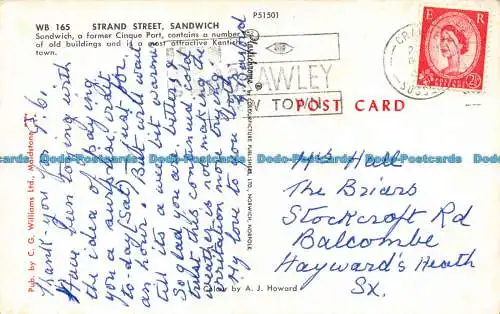 WB 165 STRAND STREET, SANDWICH
Sandwich, a former Cinque Port, contains a number
of old buildings and is a most attractive Kentish
town.
P51501
CRAWLEY
NEW TOWN
E R
2½D
POST CARD
Pub. by C. G. Williams Ltd., Maidstone
Colour by A. J. Howard
3.6.61
Thank-you for
Have been toying with
the idea of paying
you a surprise visit
to-day (Sat) just for
an hour. But will wait
till it's a wee bit warmer
So glad you are better &
trust this continued cold
weather is not making the
irritation more trying
My love to you both
Mrs Hall
The Briars
Stockcroft Rd
Balcombe
Hayward's Heath
Sx.
Dodo-Postcards Dodo-Postcards Dodo-Postcards Dodo-Postcards Dodo-Postcards